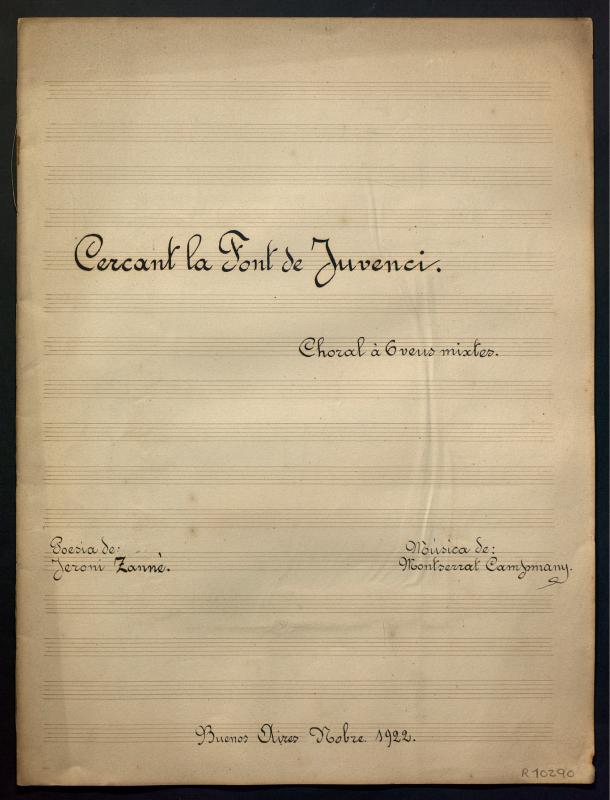 Cercant la Font de Juvenci.
Choral à 6 veus mixtes.
Poesia de:
Jeroni Zanné.
Música de:
Montserrat Campmany.
Buenos Aires Nobre. 1922.
R 10290